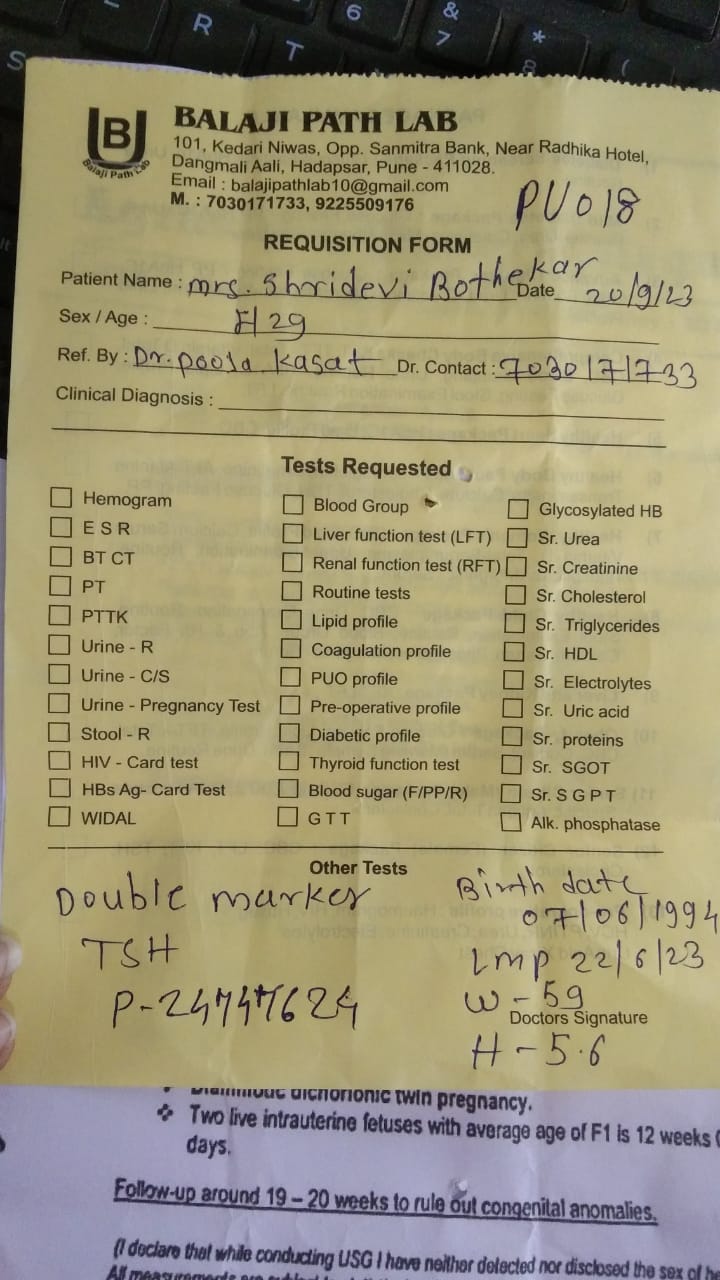 R
6
&
7
*
8
(
T
S
B
Balaji Path Lab
BALAJI PATH LAB
101, Kedari Niwas, Opp. Sanmitra Bank, Near Radhika Hotel,
Dangmali Aali, Hadapsar, Pune - 411028.
Email : balajipathlab10@gmail.com
M. : 7030171733, 9225509176
PU018
REQUISITION FORM
Patient Name : mrs. Shridevi Bothekar Date 20/9/23
Sex / Age : F/29
Ref. By : Dr. pooja Kasat Dr. Contact : 7030171733
Clinical Diagnosis :
Tests Requested
Hemogram Blood Group Glycosylated HB
E S R Liver function test (LFT) Sr. Urea
BT CT Renal function test (RFT) Sr. Creatinine
PT Routine tests Sr. Cholesterol
PTTK Lipid profile Sr. Triglycerides
Urine - R Coagulation profile Sr. HDL
Urine - C/S PUO profile Sr. Electrolytes
Urine - Pregnancy Test Pre-operative profile Sr. Uric acid
Stool - R Diabetic profile Sr. proteins
HIV - Card test Thyroid function test Sr. SGOT
HBs Ag- Card Test Blood sugar (F/PP/R) Sr. S G P T
WIDAL G T T Alk. phosphatase
Other Tests
Double marker
TSH
Birth date
07/06/1994
LMP 22/6/23
W - 59
Doctors Signature
H - 5.6
dichorionic twin pregnancy.
Two live intrauterine fetuses with average age of F1 is 12 weeks
days.
Follow-up around 19 – 20 weeks to rule out congenital anomalies.
(I declare that while conducting USG I have neither detected nor disclosed the sex of